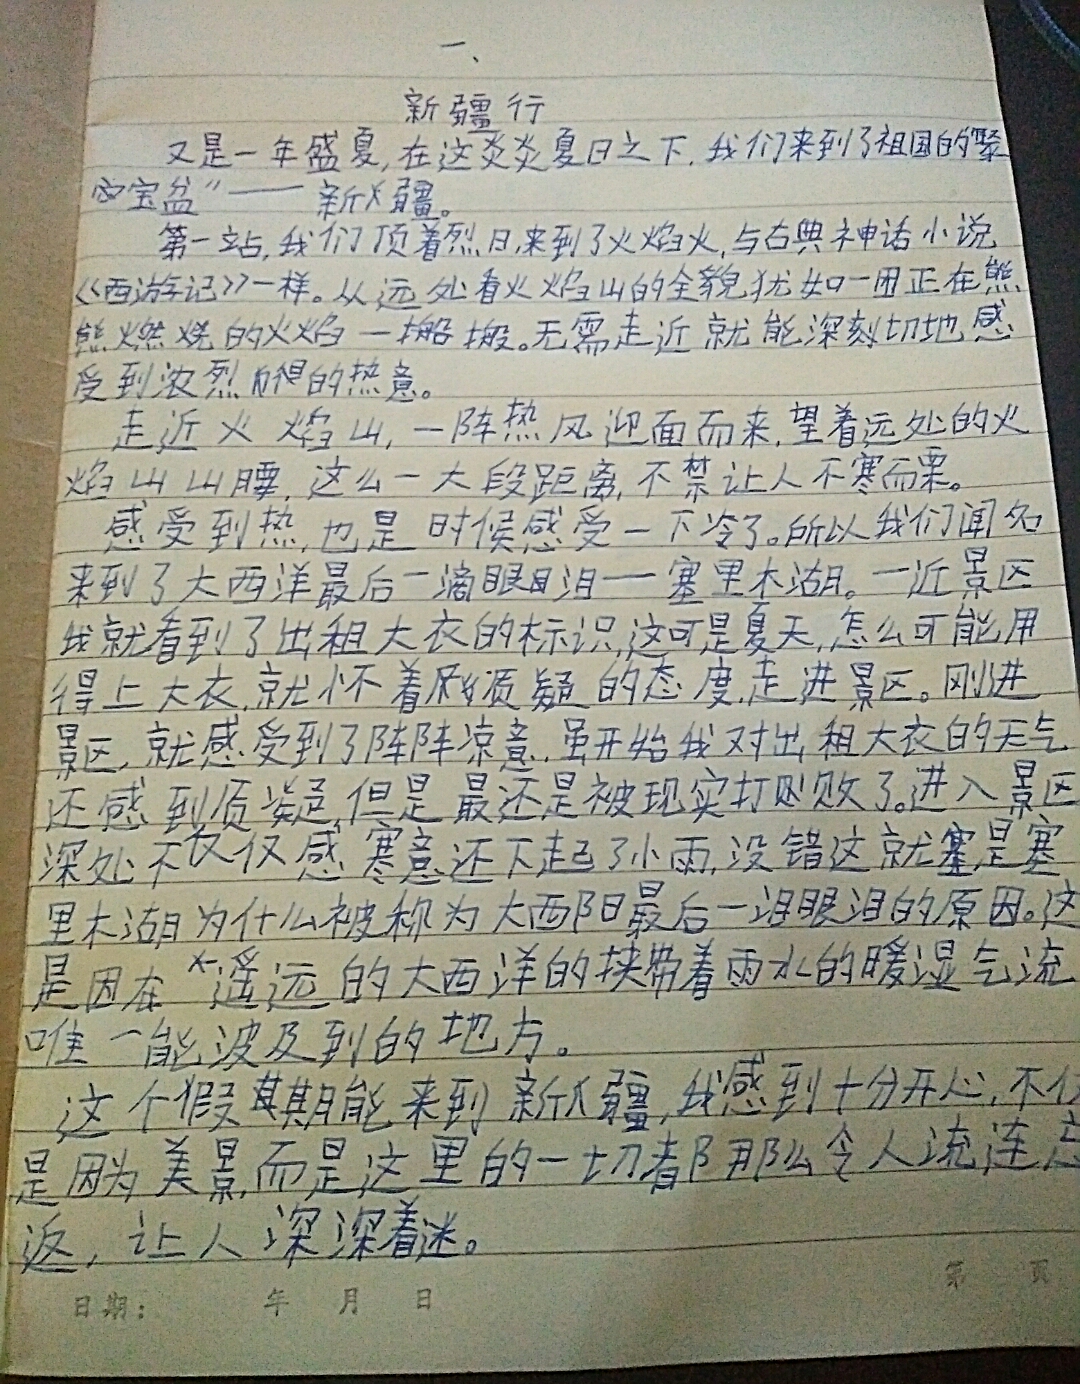 一、
新疆行
又是一年盛夏,在这炎炎夏日之下,我们来到了祖国的"聚
宝盆"——新疆。
第一站,我们顶着烈日,来到了火焰火,与古典神话小说
《西游记》一样。从远处看火焰山的全貌犹如一用正在熊
熊燃烧的火焰一般。无需走近就能深刻切地感
受到浓烈的热意。
走近火焰山,一阵热风迎面而来,望着远处的火
焰山山腰,这么一大段距离,不禁让人不寒而栗。
感受到热,也是时候感受一下冷了。所以我们闻名
来到了大西洋最后一滴眼泪一一塞里木湖。一近景区
我就看到了出租大衣的标识,这可是夏天,怎么可能用
得上大衣,就怀着质疑的态度,走进景区。刚进
景区,就感受到了阵阵凉意,虽开始我对出租大衣的天气
还感到质疑,但是最还是被现实打败了。进入景区
深处不仅感寒意还下起了小雨,没错这就是塞
里木湖为什么被称为大西阳最后一泪眼泪的原因。这
是因在遥远的大西洋的挟带着雨水的暖湿气流
唯一能波及到的地方。
这个假期能来到新疆,我感到十分开心,不仅
是因为美景,而是这里的一切都那么令人流连忘
返,让人深深着迷。
日期: 年 月 日
第 页